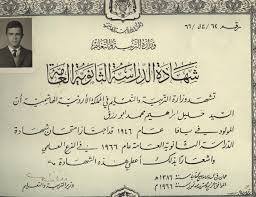 وزارة التربية والتعليم
شهادة الدراسة الثانوية العامة
تشهد وزارة التربية والتعليم في المملكة الأردنية الهاشمية أن
السيد خليل ابراهيم محمد ابو رزق
المولود في يافا عام ١٩٤٦ قد اجتاز امتحان شهادة
الدراسة الثانوية العامة عام ١٩٦٦ في الفرع العلمي
واشعارا بذلك أعطي هذه الشهادة
١٣٨٦ هـ
١٩٦٦ م
وزير التربية والتعليم